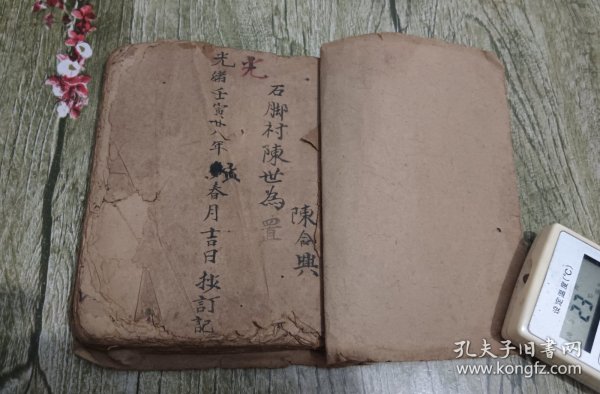 陳合興
石脚村陳世為置
光
光緒壬寅廿八年孟春月吉日抄訂記
室温(℃)
23
孔夫子旧书网
www.kongfz.com